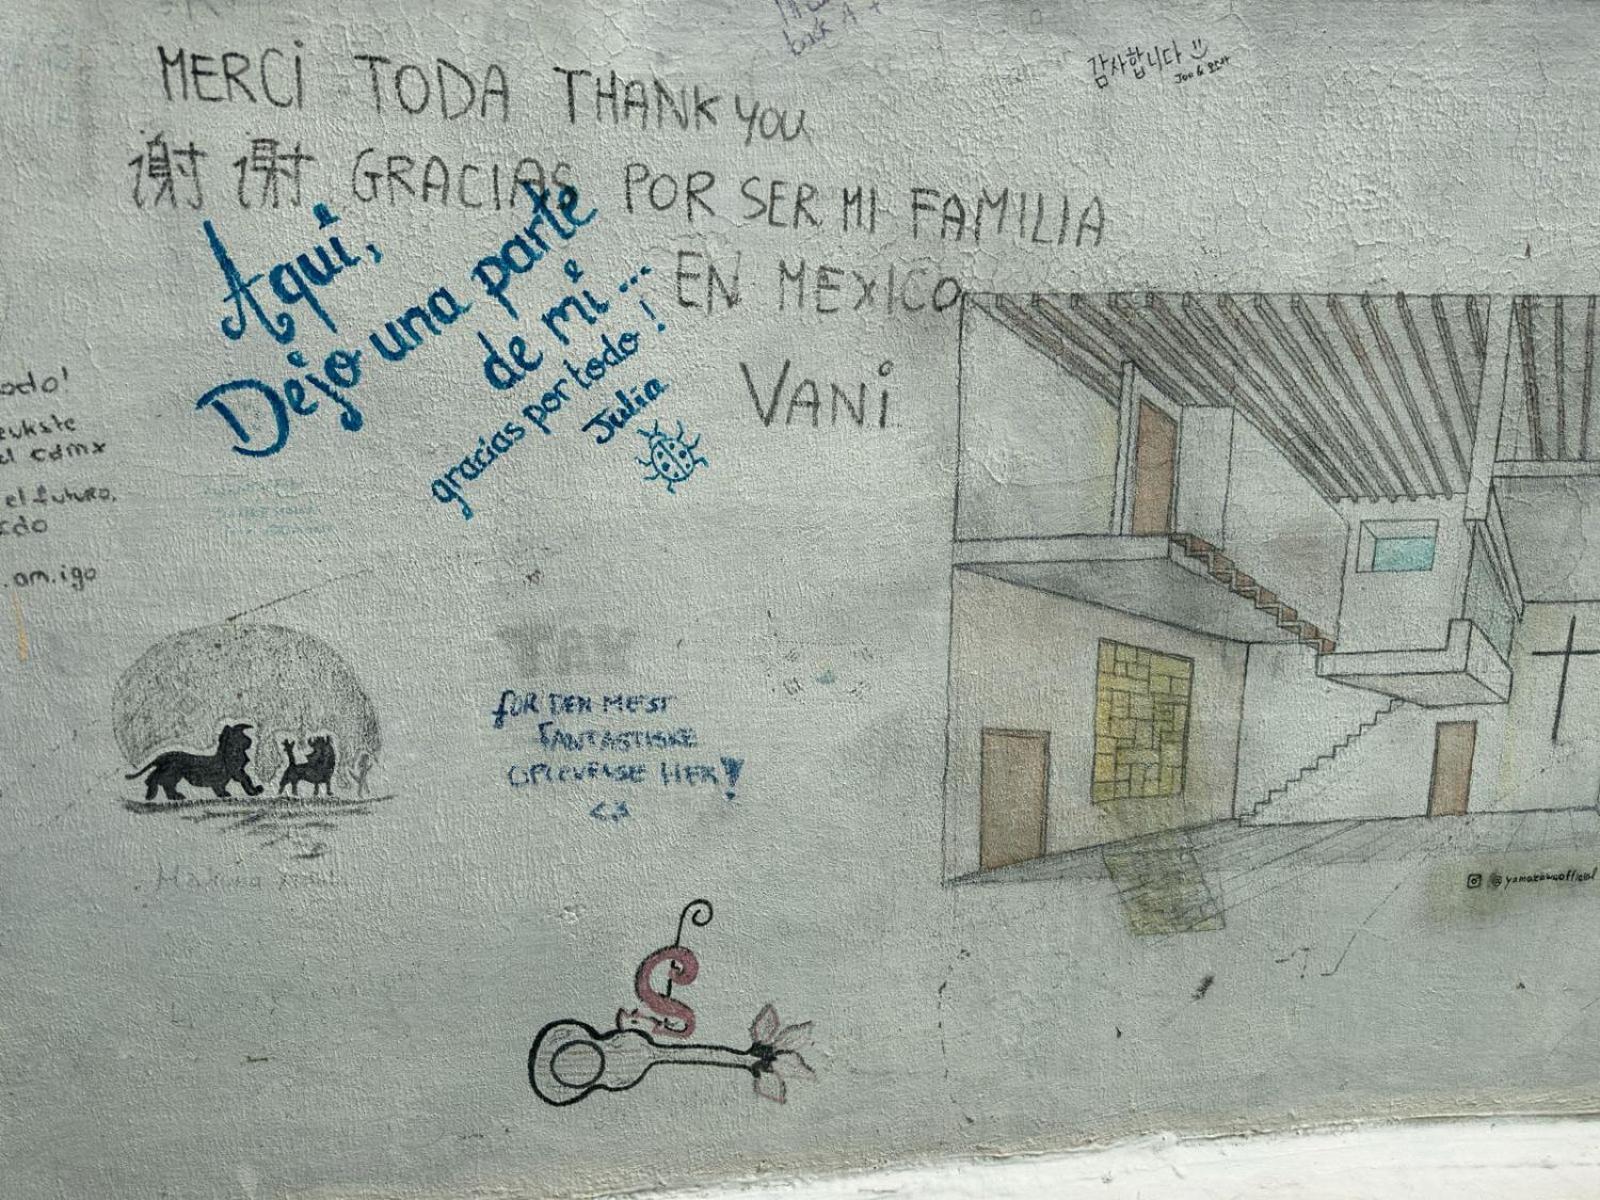 감사합니다
MERCi TODA THANK YOU
谢谢 GRACIAS POR SER MI FAMILIA
EN MEXICO
VANi
Aquí,
Dejo una parte
de mi...
gracias por todo!
Julia
odo!
cdmx
el futuro,
amigo
TAK
FOR DEN MEST
FANTASTISKE
OPLEVELSE HER!
<3
Hakuna
S
@yamazawaofficial